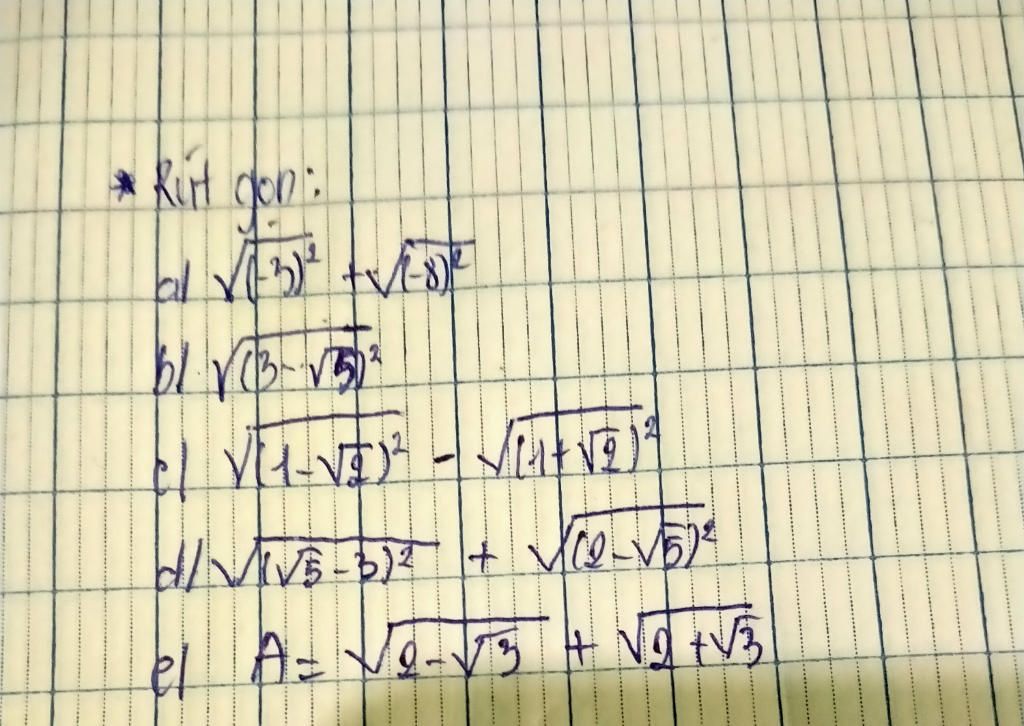 * Rút gọn:
a) √(-3)² + √(-8)²
b) √(3-√5)²
c) √(1-√2)² - √(1+√2)²
d) √(√5-3)² + √(2-√5)²
e) A = √2-√3 + √2+√3